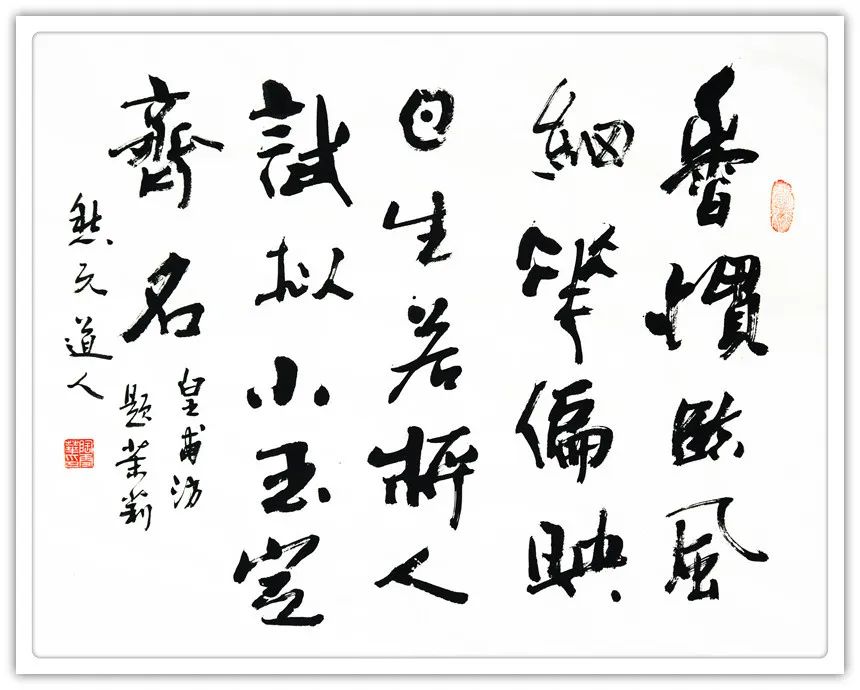 香慣臨風
細花偏映
日生若將人
試拟小玉定
齊名
皇甫汸
題茉莉
元道人